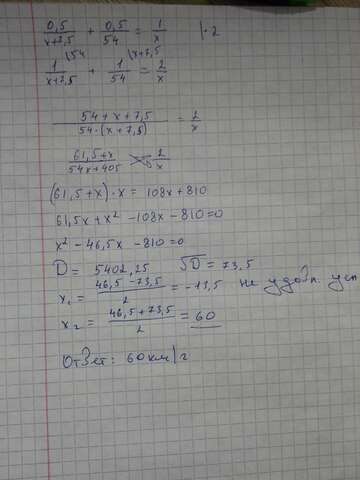 0,5/(x+7,5) + 0,5/54 = 1/x |·2
1/(x+7,5) \54 + 1/54 \x+7,5 = 2/x
(54+x+7,5)/(54·(x+7,5)) = 2/x
(61,5+x)/(54x+405) = 2/x
(61,5+x)·x = 108x+810
61,5x+x² -108x -810=0
x² -46,5x -810=0
D = 5402,25 √D = 73,5
x₁ = (46,5-73,5)/2 = -13,5 не удовл. усл
x₂ = (46,5+73,5)/2 = 60
Ответ: 60 км/ч